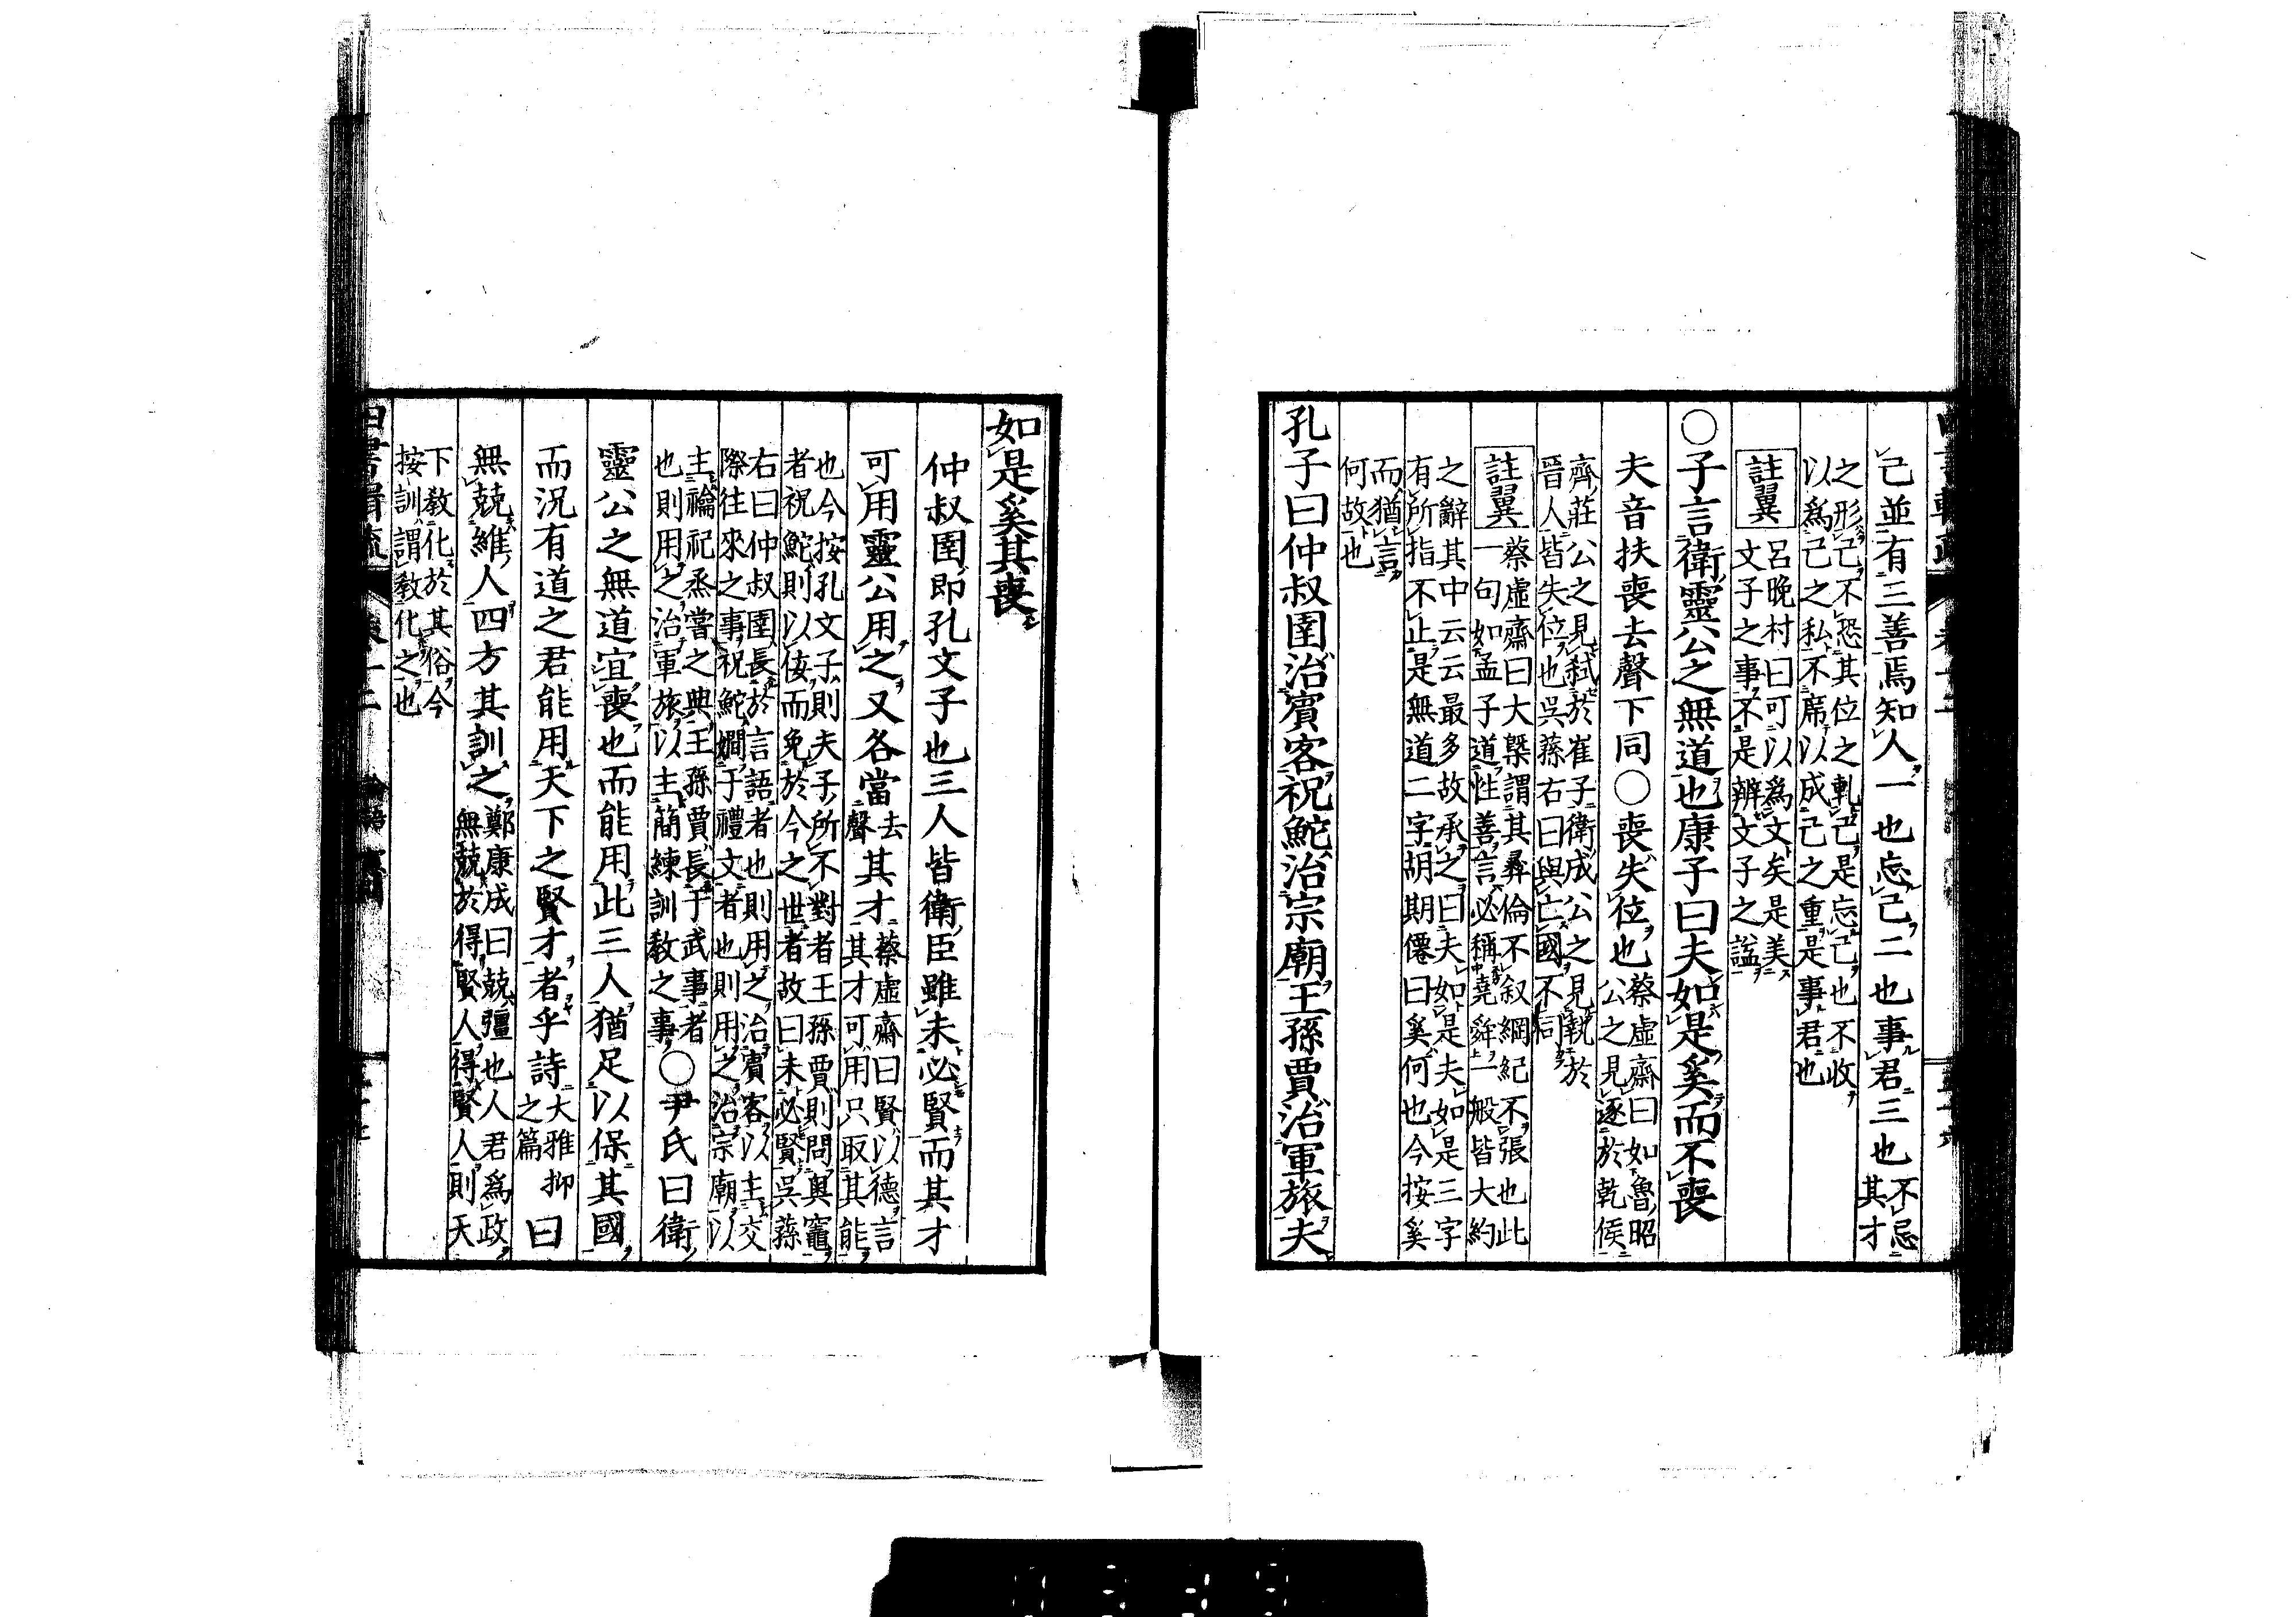 己並有三善焉知人一也忘己二也事君三也不忌
其才
之形己不恐其位之軋己是忘己也不收
以爲己之私不席以成己之重是事君也
註翼
呂晚村曰可以爲文矣是美
文子之事不是辨文子之諡
○子言衛靈公之無道也康子曰夫如是奚而不喪
夫音扶喪去聲下同○喪失位也
蔡虛齋曰如魯昭
公之見逐於乾侯
齊莊公之見弒於崔子衛成公之見執於
晉人皆失位也吳蓀右曰與亡國不同
註翼
蔡虛齋曰大槩謂其彞倫不叙綱紀不張也此
一句如孟子道性善言必稱堯舜一般皆大約
之辭其中云云最多故承之曰夫如是夫如是三字
有所指不止是無道二字胡期僊曰奚何也今按奚
而猶言
何故也
孔子曰仲叔圉治賓客祝鮀治宗廟王孫賈治軍旅夫
如是奚其喪
仲叔圉即孔文子也三人皆衛臣雖未必賢而其才
可用靈公用之又各當
去
聲
其才
蔡虛齋曰賢以德言
其才可用只取其能
也今按孔文子則夫子所不對者王孫賈則問奧竈
者祝鮀則以佞而免於今之世者故曰未必賢吳蓀
右曰仲叔圉長於言語者也則用之治賓客以主交
際往來之事祝鮀嫺于禮文者也則用之治宗廟以
主禴祀烝嘗之典王孫賈長于武事者
也則用之治軍旅以主簡練訓敎之事
○尹氏曰衛
靈公之無道宜喪也而能用此三人猶足以保其國
而況有道之君能用天下之賢才者乎詩
大雅抑
之篇
曰
無競維人四方其訓之
鄭康成曰競彊也人君爲政
無競於得賢人得賢人則天
下敎化於其俗今
按訓謂敎化之也